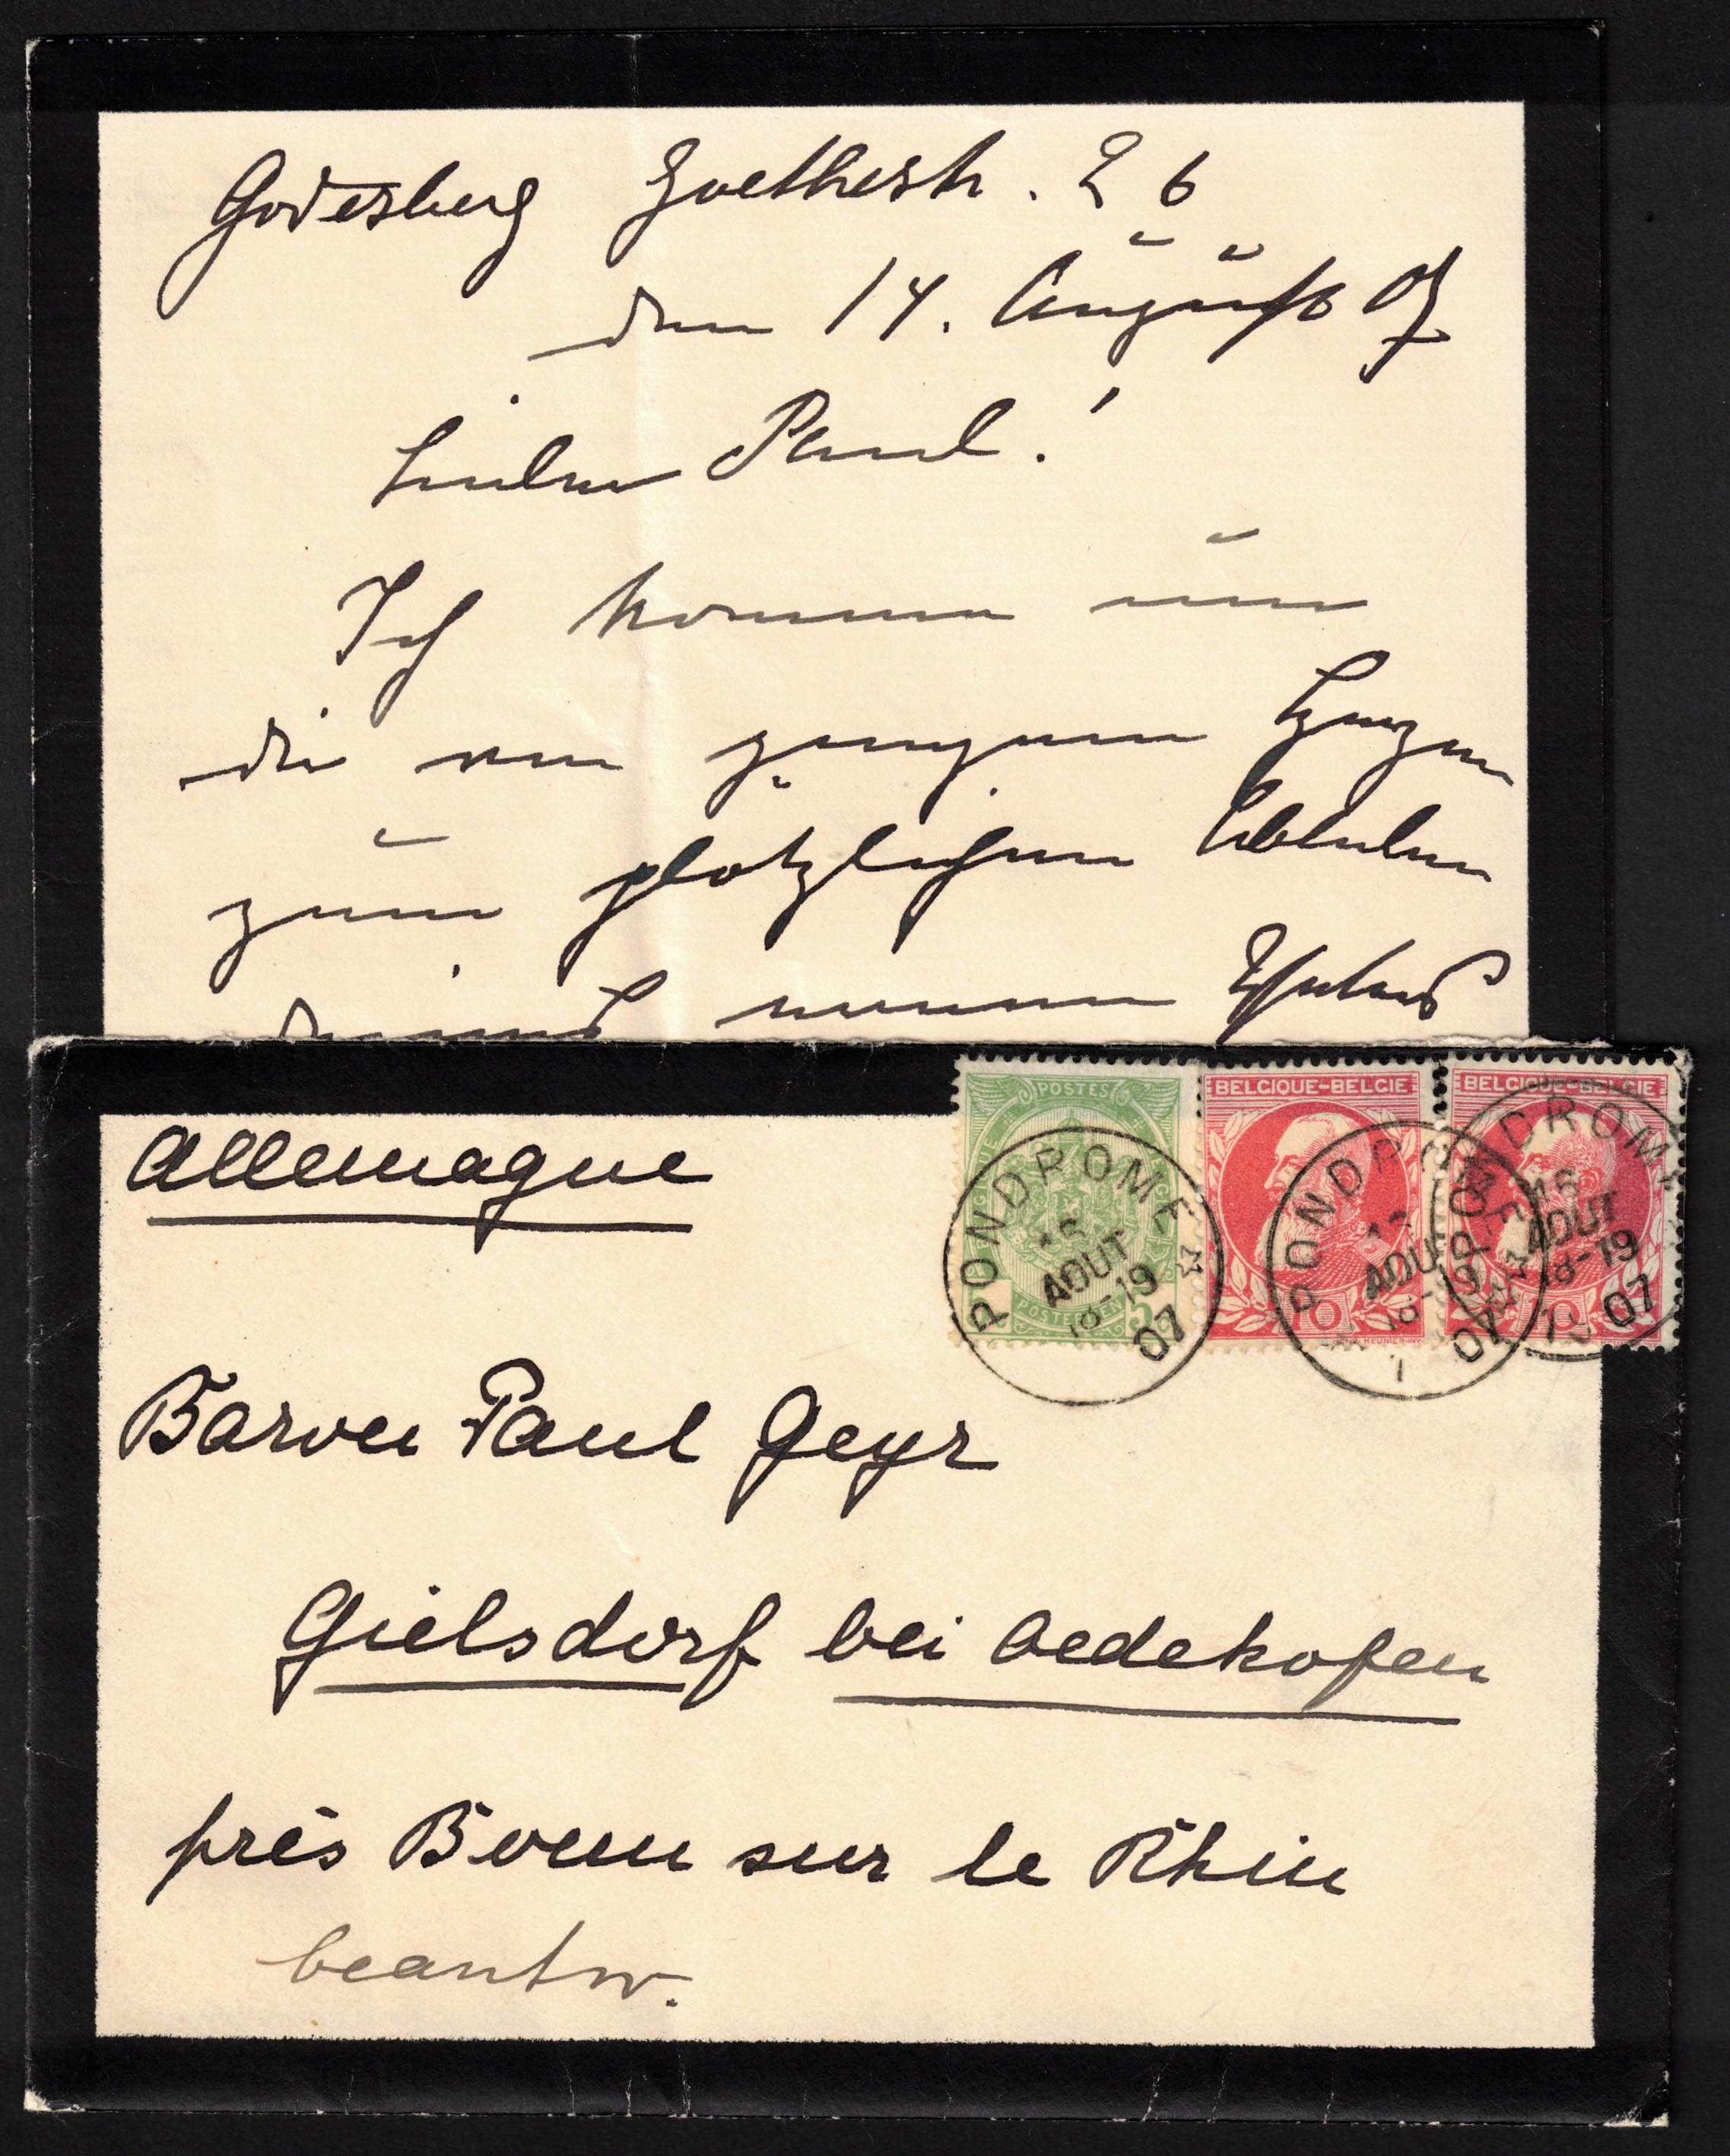 Godesberg Goethestr. 26
den 14. August 07
Lieber Paul!
Ich komme um
dir von ganzem Herzen
zum plötzlichen Ableben
deines
POSTES
POSTERIJEN 5
BELGIQUE-BELGIE
10
BELGIQUE-BELGIE
10
PONDROME
16
AOUT
18-19
07
PONDROME
AOUT
18-19
07
PONDROME
16
AOUT
18-19
07
Allemagne
Baron Paul Geyr
Gielsdorf bei Oedekofen
près Bonn sur le Rhin
beantw.